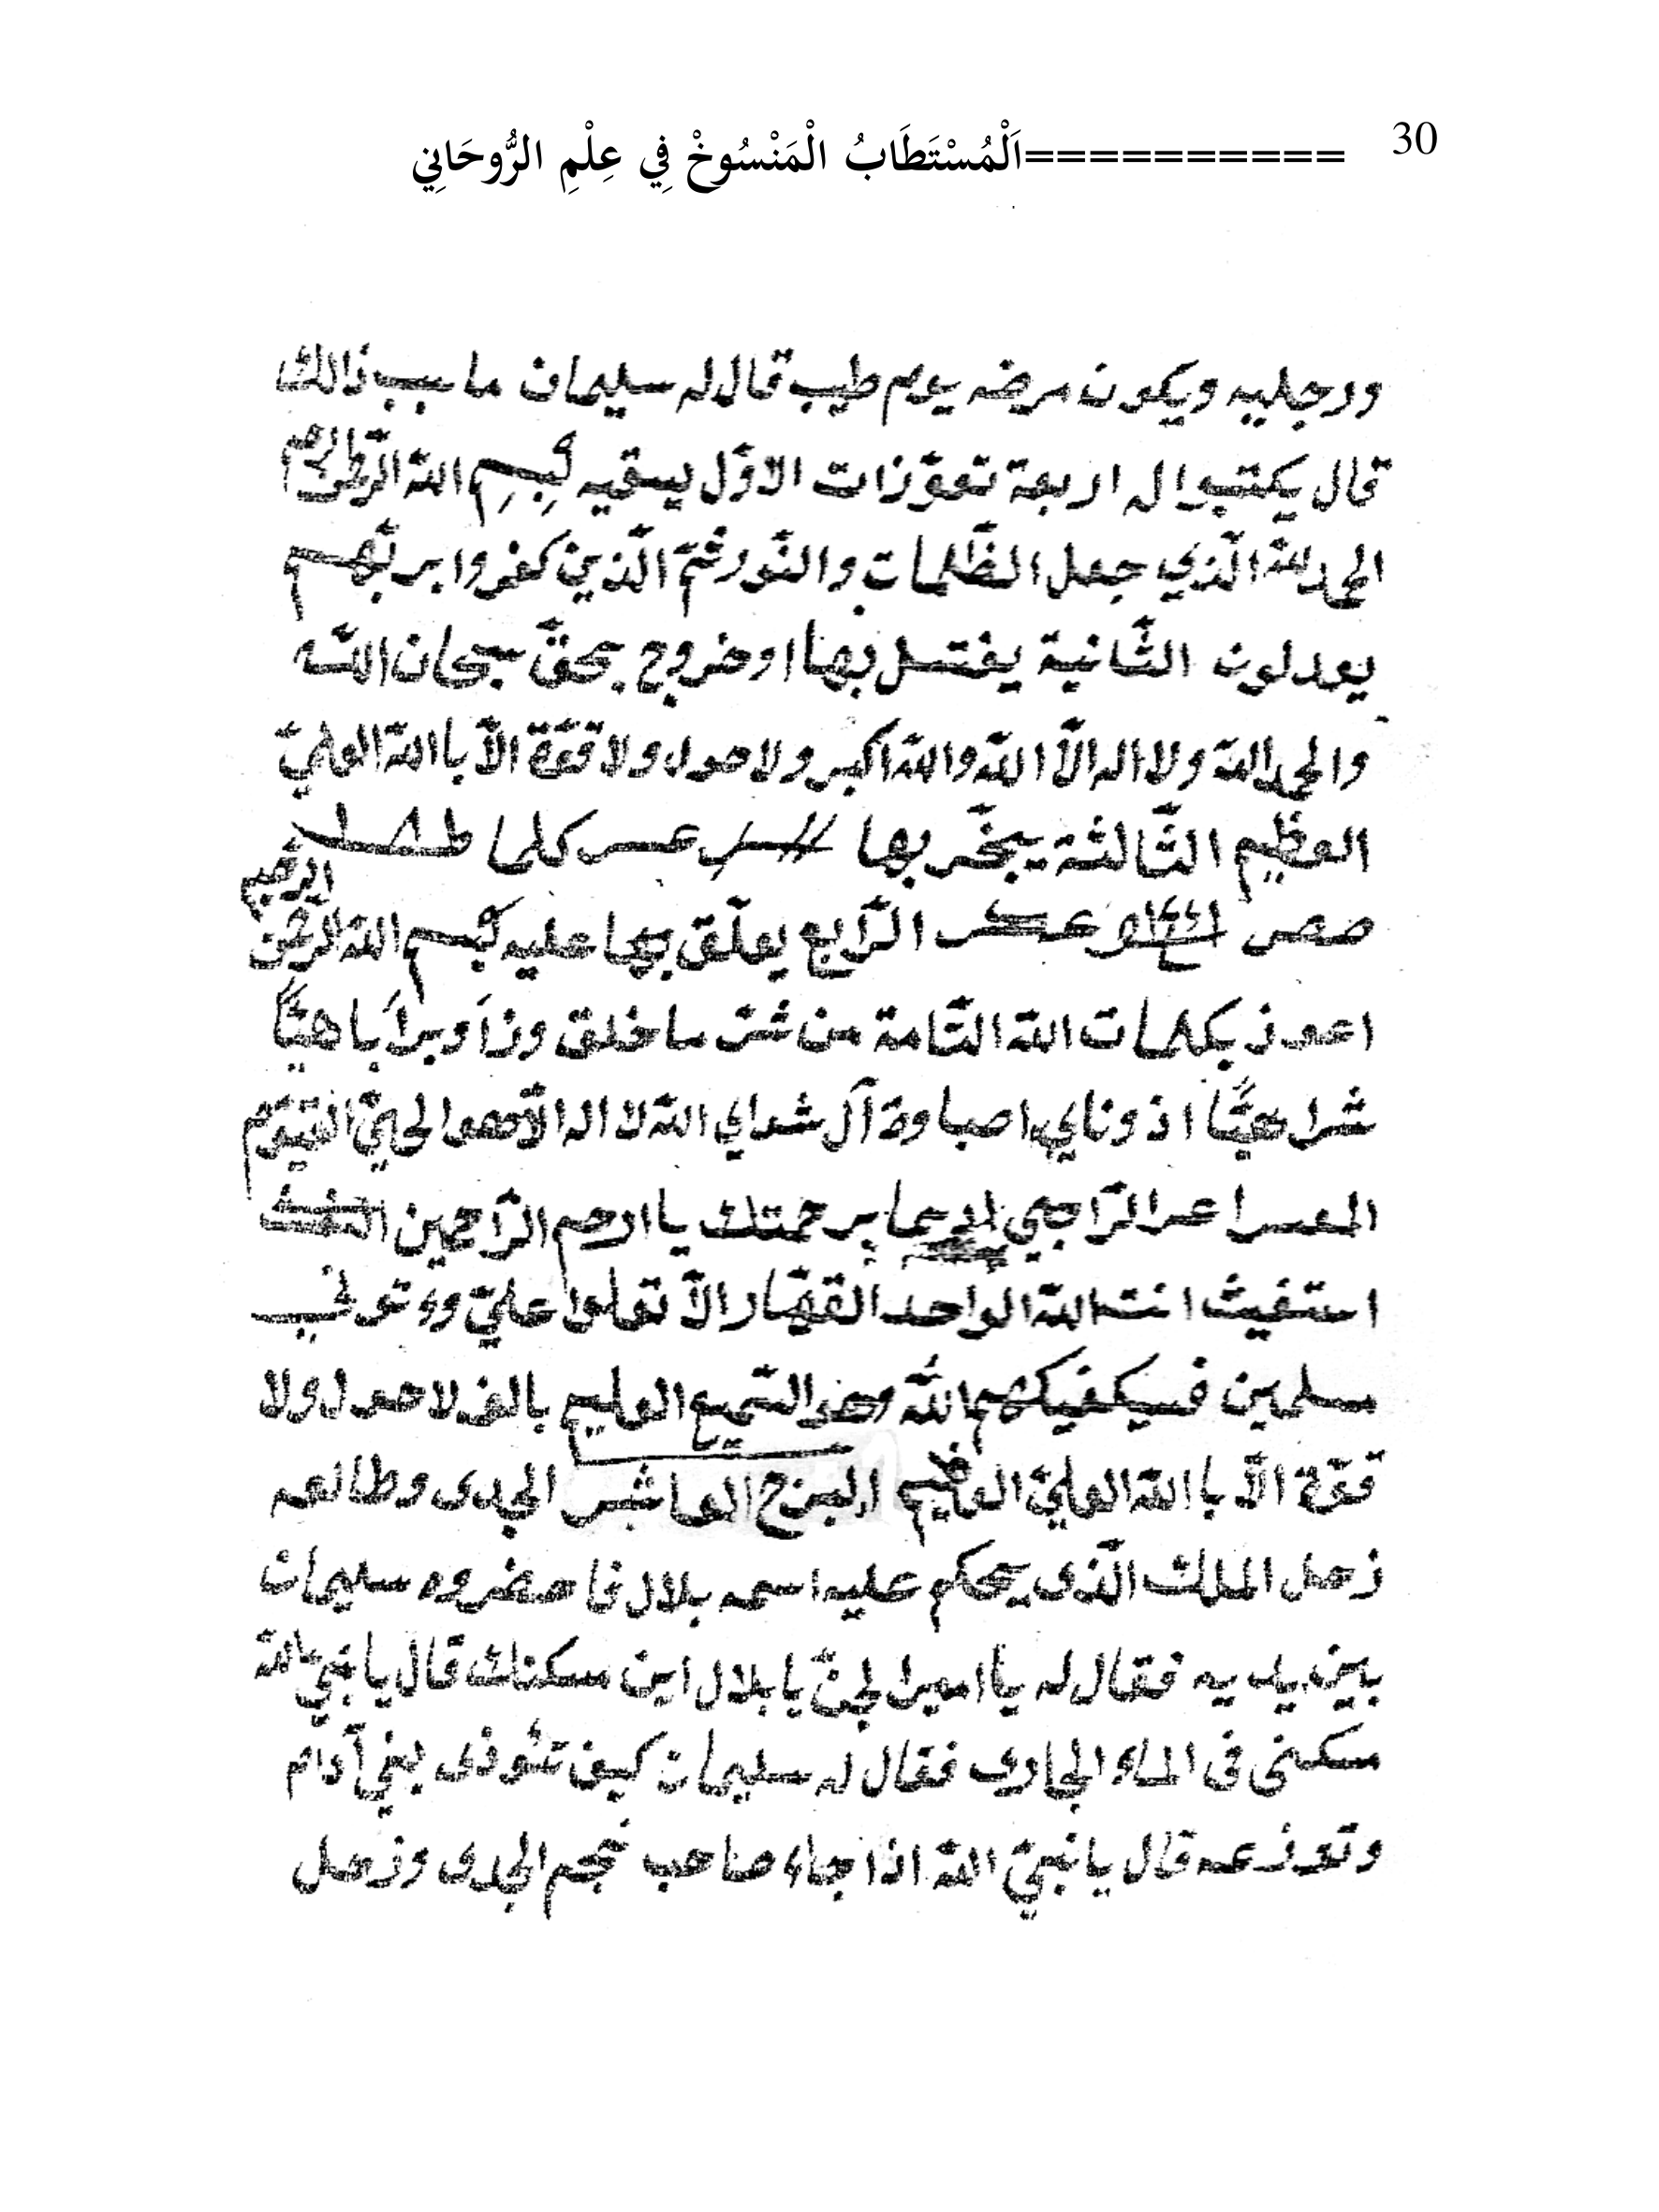 30
==========اَلْمُسْتَطَابُ الْمَنْسُوخْ فِي عِلْمِ الرُّوحَانِي
ورجليه ويكون مرضه يوم طيب قال له سليمان ما سبب ذالك
قال يكتبوا له اربعة تعوّزات الاوّل يسقيه بِسِم اللّه الرّحمن الرّحيم
الحمد للّه الّذي جعل الظّلمات والنّور ثمّ الّذين كفروا بربّهم
يعدلون الثّانية يغتسل بها او خروج بحقّ سبحان اللّه
والحمد اللّه ولا اله الاّ اللّه واللّه اكبر ولا حول ولا قوّة الاّ باللّه العليّ
العظيم الثّالثة يبخّر بها كلما
الرّابع يعلّق بها عليه بسم اللّه الرّحمن الرّحيم
اعوذ بكلمات اللّه التّامة من شرّ ما خلق وزأ وبرأ باهيًّا
شراهيًّا اذوناي اصباوة آل شداي اللّه لا اله الاّ هو الحيّ القيّوم
برحمتك يا ارحم الرّاحمين
استغيث انت اللّه الواحد القهّار الاّ تعلوا عليّ وءتوني
مسلمين فسيكفيكهم اللّه وهو السّميع العليم بالف لا حول ولا
قوّة الاّ باا اللّه العليّ العظيم البرج العاشر الجدى وطالعه
زحل الملك الّذى يحكم عليه اسمه بلال فاحضروه سليمان
بين يديه فقال له يا امير الجنّ يا بلال اين مسكنك قال يا نبيّ اللّه
مسكنى فى الماء الجارى فقال له سليمان كيف تئوذى بني آدام
وتوزعه قال يا نبيّ اللّه اذا جاء صاحب نجم الجدى وزحل